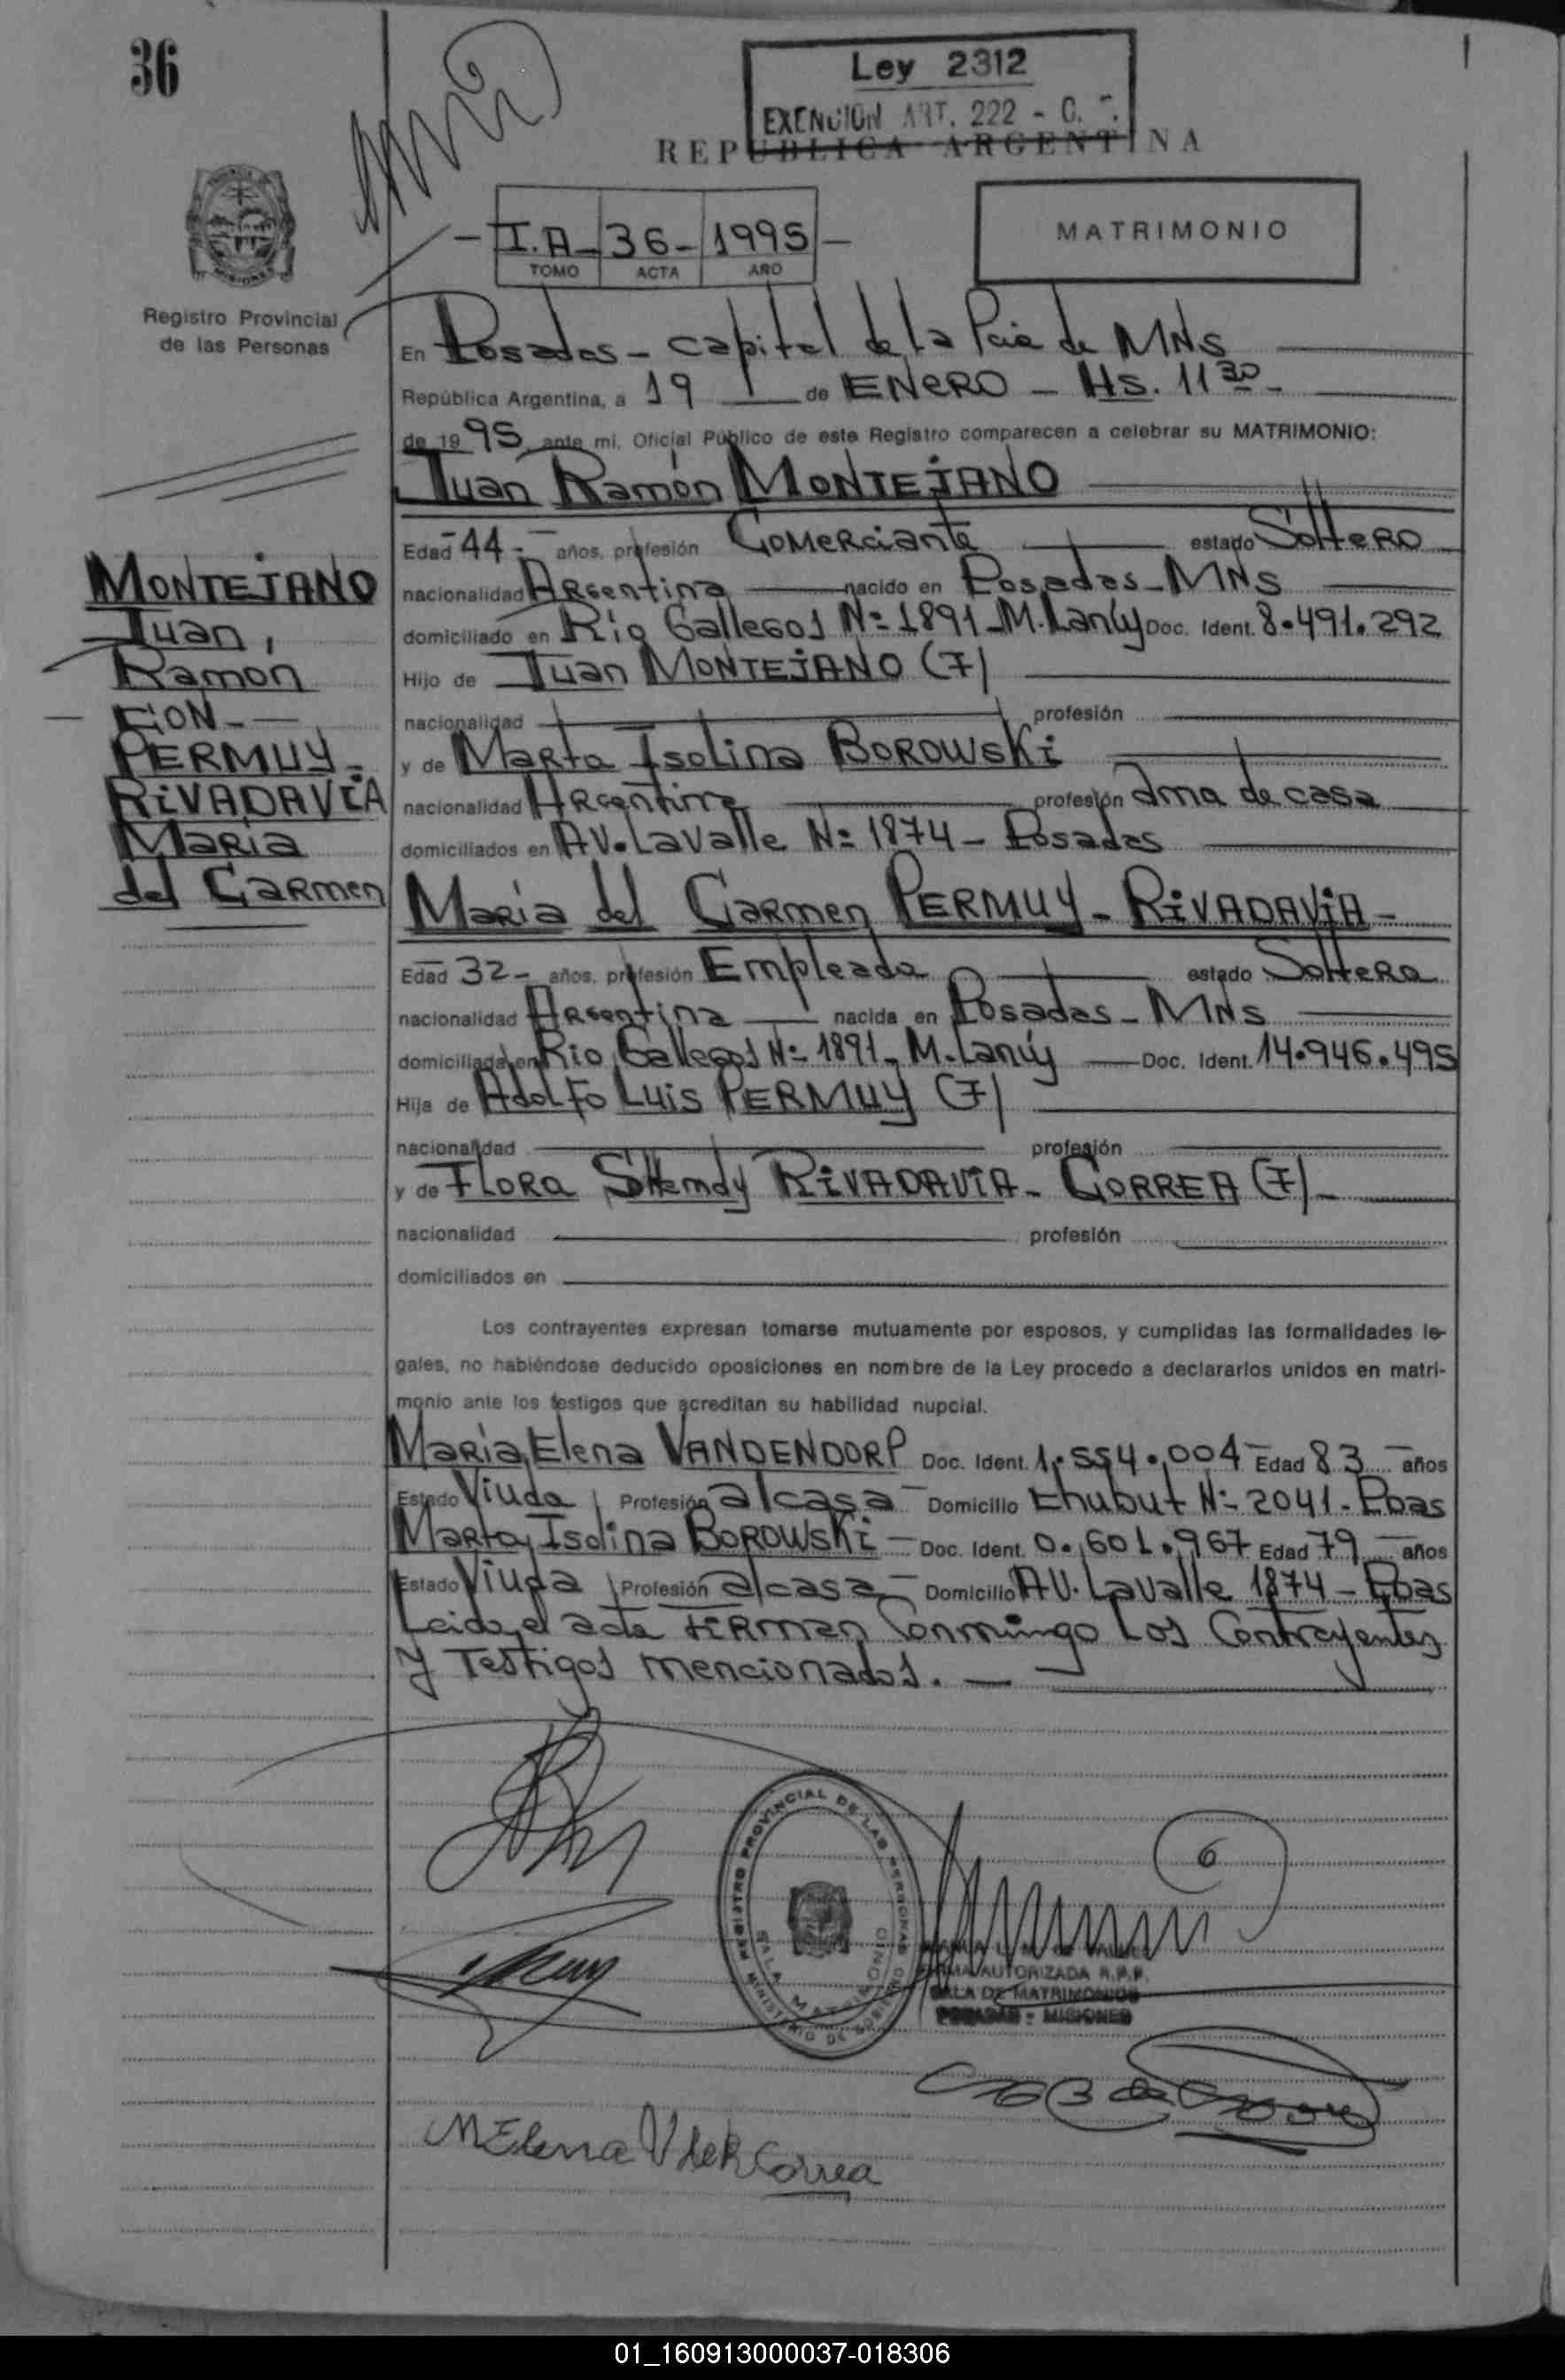 36
Ley 2312
EXENCION ART. 222 - C.
REPUBLICA ARGENTINA
I.A - 36 - 1995
TOMO ACTA AÑO
MATRIMONIO
Registro Provincial
de las Personas
En Posadas - Capital de la Pcia de MNS
República Argentina, a 19 de ENERO - Hs. 11 30 -
de 19 95 ante mi, Oficial Público de este Registro comparecen a celebrar su MATRIMONIO:
Juan Ramón MONTEJANO
Edad 44 - años, profesión Comerciante estado Soltero
nacionalidad Argentina nacido en Posadas - MNS
domiciliado en Rio Gallegos Nº 1891 - M. Lanús Doc. Ident. 8.491.292
Hijo de Juan MONTEJANO (F)
nacionalidad profesión
y de Marta Isolina BOROWSKI
nacionalidad Argentina profesión ama de casa
domiciliados en AV. Lavalle Nº 1874 - Posadas
MONTEJANO
Juan,
Ramon
- CON -
PERMUY -
RIVADAVIA
Maria
del Carmen
Maria del Carmen PERMUY - RIVADAVIA -
Edad 32 - años, profesión Empleada estado Soltera
nacionalidad Argentina nacida en Posadas - MNS
domiciliada en Rio Gallegos Nº 1891 - M. Lanús Doc. Ident. 14.946.495
Hija de Adolfo Luis PERMUY (F)
nacionalidad profesión
y de Flora RIVADAVIA - CORREA (F) -
nacionalidad profesión
domiciliados en
Los contrayentes expresan tomarse mutuamente por esposos, y cumplidas las formalidades le-
gales, no habiéndose deducido oposiciones en nombre de la Ley procedo a declararlos unidos en matri-
monio ante los testigos que acreditan su habilidad nupcial.
Maria Elena VANDENDORP Doc. Ident. 1.554.004 Edad 83 años
Estado Viuda Profesión a/casa Domicilio Chubut Nº 2041 - Pdas
Marta Isolina BOROWSKI - Doc. Ident. 0.601.967 Edad 79 años
Estado Viuda Profesión a/casa Domicilio AV. Lavalle 1874 - Pdas
Leida el acta firman conmingo los contrayentes
y Testigos mencionados. -
REGISTRO PROVINCIAL DE LAS PERSONAS
SALA MATRIMONIO
MINISTERIO DE GOBIERNO
FIRMA AUTORIZADA R.P.P.
SALA DE MATRIMONIOS
POSADAS - MISIONES
MElena Correa
01_160913000037-018306